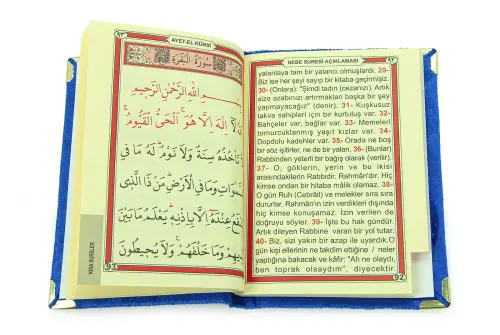 ٩٣
AYET-EL KÜRSİ
سُورَةُ الْبَقَرَةِ
بِسْمِ اللّٰهِ الرَّحْمٰنِ الرَّحِيمِ
اَللّٰهُ لَا اِلٰهَ اِلَّا هُوَۚ اَلْحَيُّ الْقَيُّومُۚ
تَأْخُذُهُ سِنَةٌ وَلَا نَوْمٌۜ لَهُ مَا فِي
وَمَا فِي الْاَرْضِۜ مَنْ ذَا الَّذِي
عِنْدَهُ اِلَّا بِاِذْنِهِۜ يَعْلَمُ مَا بَيْنَ
وَمَا خَلْفَهُمْۚ وَلَا يُحِيطُونَ
KISA SURELER
93
NEBE SURESİ AÇIKLAMASI
٩٢
yalanlaya tam bir yalancı olmuşlardı. 29-
Biz ise her şeyi sayıp bir kitaba geçirmişiz.
30- (Onlara): "Şimdi tadın (cezanızı). Artık
size azabınızı artırmaktan başka bir şey
yapmayacağız" (denir). 31- Kuşkusuz
takva sahipleri için bir kurtuluş var. 32-
Bahçeler var, bağlar var. 33- Memeleri
tomurcuklanmış yaşıt kızlar var. 34-
Dopdolu kadehler var. 35- Orada ne boş
bir söz işitirler, ne de bir yalan. 36- (Bunlar)
Rabbinden yeterli bir bağış olarak (verilir).
37- O, göklerin, yerin ve bu ikisi
arasındakilerin Rabbidir. Rahmân'dır. Hiç
kimse ondan bir hitaba mâlik olamaz. 38-
O gün Ruh (Cebrail) ve melekler sıra sıra
dururlar. Rahmân'ın izin verdikleri dışında
hiç kimse konuşamaz. İzin verilen de
doğruyu söyler. 39- İşte bu hak gündür.
Artık dileyen Rabbine varan bir yol tutar.
40- Biz, sizi yakın bir azap ile uyardık.O
gün kişi ellerinin ne takdim ettiğine / neler
yaptığına bakacak ve kâfir: "Ah ne olaydı,
ben toprak olsaydım", diyecektir.
92